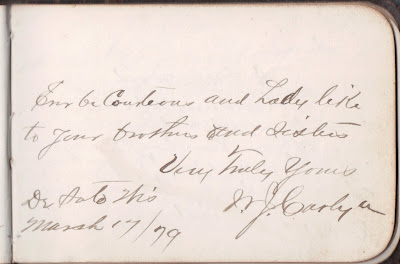 Ever be Courteous and Lady like
to your brothers and Sisters
Very Truly Yours
De Soto Wis
March 17/79
W. J.